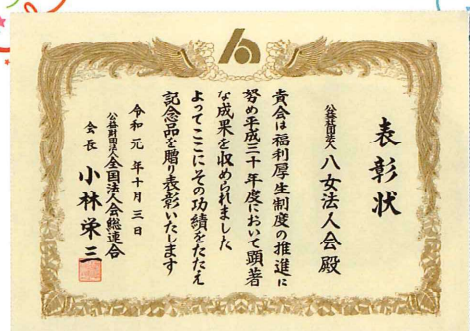 表彰状
公益社団法人 八女法人会殿
貴会は福利厚生制度の推進に
努め平成三十年度において顕著
な成果を収められました
よってここにその功績をたたえ
記念品を贈り表彰いたします
令和元年十月三日
公益財団法人 全国法人会総連合
会長 小林栄三